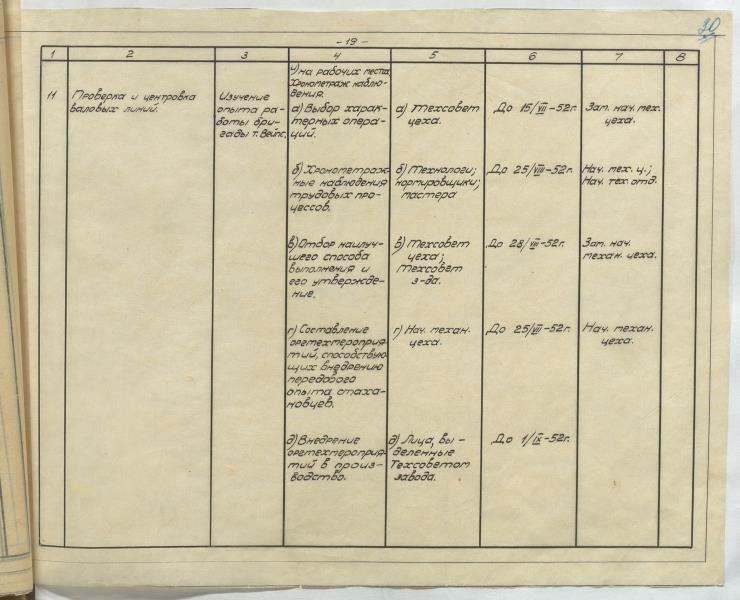 30
-19-
1 2 3 4 5 6 7 8
4) На рабочих места
Хронометраж наблю-
дения.
11 Проверка и центровка
валовых линий.
Изучение
опыта ра-
боты бри-
гады т. Вейс.
а) Выбор харак-
терных опера-
ций.
а) Техсовет
цеха.
До 15/VII-52г.
Зам. нач. мех.
цеха.
б) Хронометраж-
ные наблюдения
трудовых про-
цессов.
б) Технологи;
нормировщики;
мастера
До 25/VIII-52г.
Нач. мех. ц.;
Нач. тех. отд.
в) Отбор наилуч-
шего способа
выполнения и
его утвержде-
ние.
в) Техсовет
цеха;
Техсовет
з-да.
До 28/VII-52г.
Зам. нач.
механ. цеха.
г) Составление
оргтехмероприя-
тий, способствую
щих внедрению
передового
опыта стаха-
новцев.
г) Нач. механ.
цеха.
До 25/VII-52г.
Нач. механ.
цеха.
д) Внедрение
оргтехмероприя-
тий в произ-
водство.
д) Лица, вы-
деленные
Техсоветом
завода.
До 1/IX-52г.